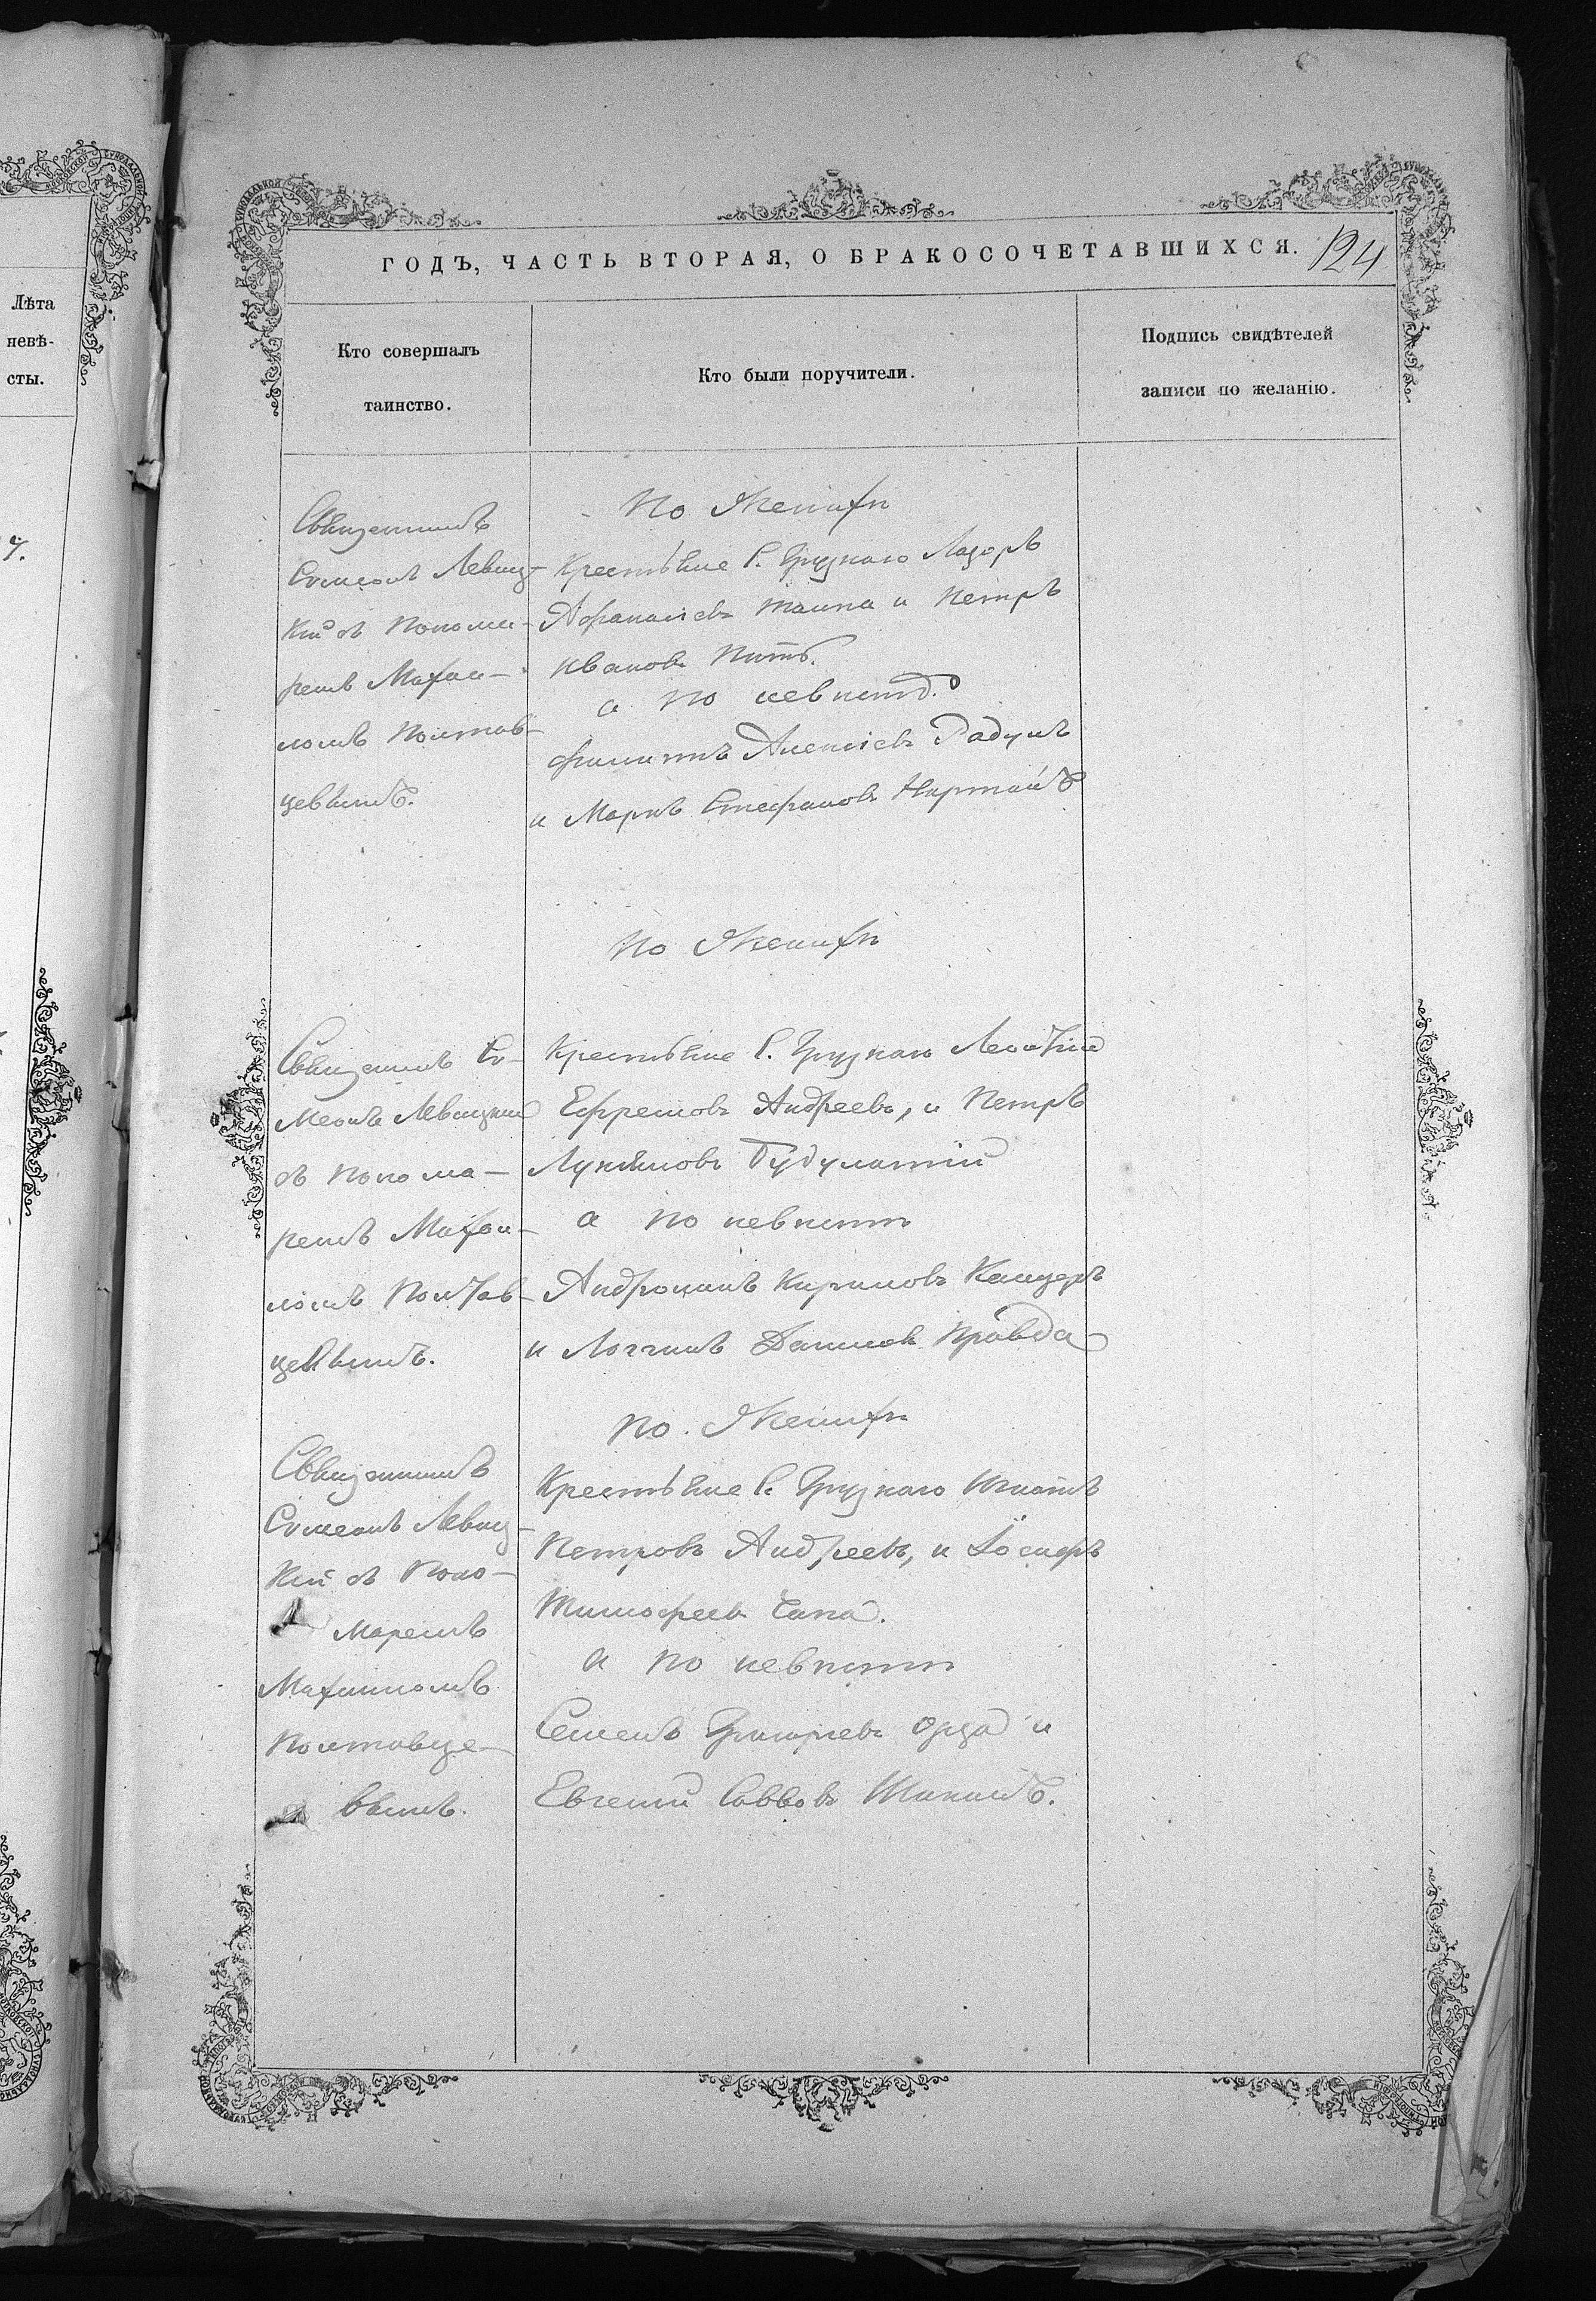 Лѣта
невѣ-
сты.
ГОДЪ, ЧАСТЬ ВТОРАЯ, О БРАКОСОЧЕТАВШИХСЯ.
124
Кто совершалъ
таинство.
Кто были поручители.
Подпись свидѣтелей
записи по желанію.
Священникъ
Симеонъ Левиц-
кій съ понома-
ремъ Маѳаи-
ломъ Полтав-
цевымъ.
По Женихѣ
Крестьяне С. Грузкаго Лазоръ
Афанасіевъ и Петръ
Ивановъ
а по невѣстѣ
Филиппъ Алексіевъ Радулъ
и Маркъ Стефановъ
По Женихѣ
Священникъ Си-
меонъ Левицкій
съ понома-
ремъ Маѳаи-
ломъ Полтав-
цевымъ.
Крестьяне С. Грузкаго Леонтій
Ефремовъ Андреевъ, и Петръ
Лукьяновъ
а по невѣстѣ
Андроникъ Кириловъ Канцеръ
и Логгинъ Даниловъ Правда
По Женихѣ
Священникъ
Симеонъ Левиц-
кій съ Поно-
маремъ
Полтавце-
вымъ.
Крестьяне С. Грузкаго Игнатъ
Петровъ Андреевъ, и Іосифъ
Тимофеевъ Чапа.
а по невѣстѣ
Семенъ Григорьевъ и
Евгений Саввовъ